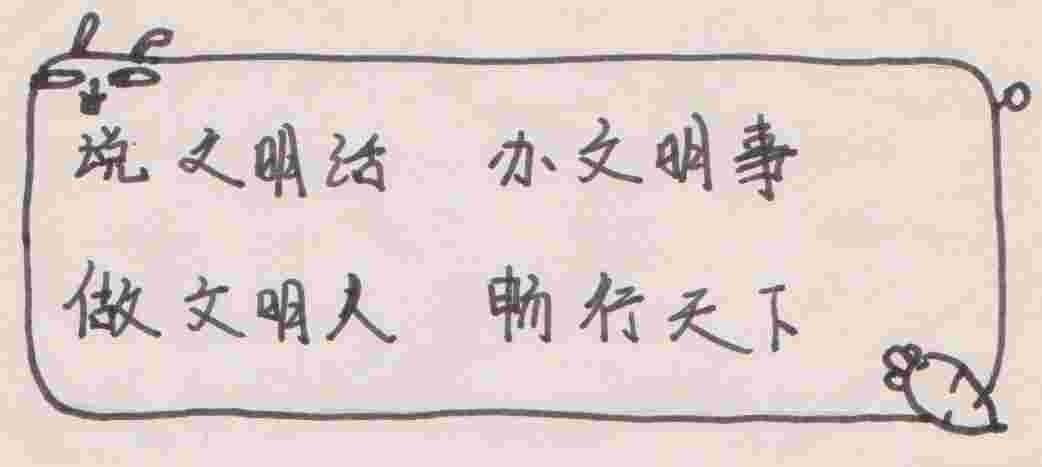 说文明话 办文明事
做文明人 畅行天下